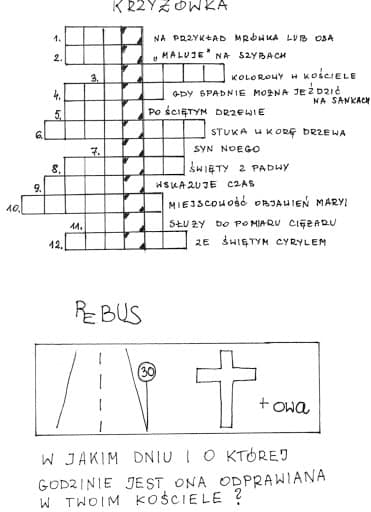 KRZYŻÓWKA
1. NA PRZYKŁAD MRÓWKA LUB OSA
2. „MALUJE" NA SZYBACH
3. KOLOROWY W KOŚCIELE
4. GDY SPADNIE MOŻNA JEŹDZIĆ
NA SANKACH
5. PO ŚCIĘTYM DRZEWIE
6. STUKA W KORĘ DRZEWA
7. SYN NOEGO
8. ŚWIĘTY Z PADWY
9. WSKAZUJE CZAS
10. MIEJSCOWOŚĆ OBJAWIEŃ MARYI
11. SŁUŻY DO POMIARU CIĘŻARU
12. ZE ŚWIĘTYM CYRYLEM
REBUS
30
+ owa
W JAKIM DNIU I O KTÓREJ
GODZINIE JEST ONA ODPRAWIANA
W TWOIM KOŚCIELE?